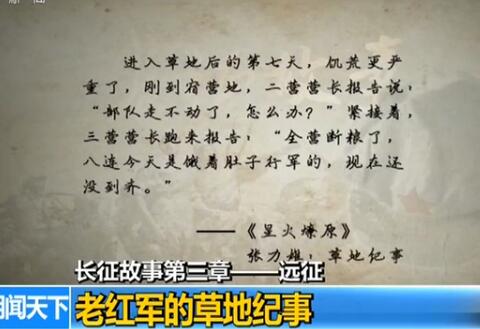 进入草地后的第七天,饥荒更严
重了,刚到宿营地,二营营长报告说:
“部队走不动了,怎么办?”紧接着,
三营营长跑来报告:“全营断粮了,
八连今天是饿着肚子行军的,现在还
没到齐。”
——《星火燎原》
张力雄:草地纪事
长征故事第三章——远征
闻天下
老红军的草地纪事